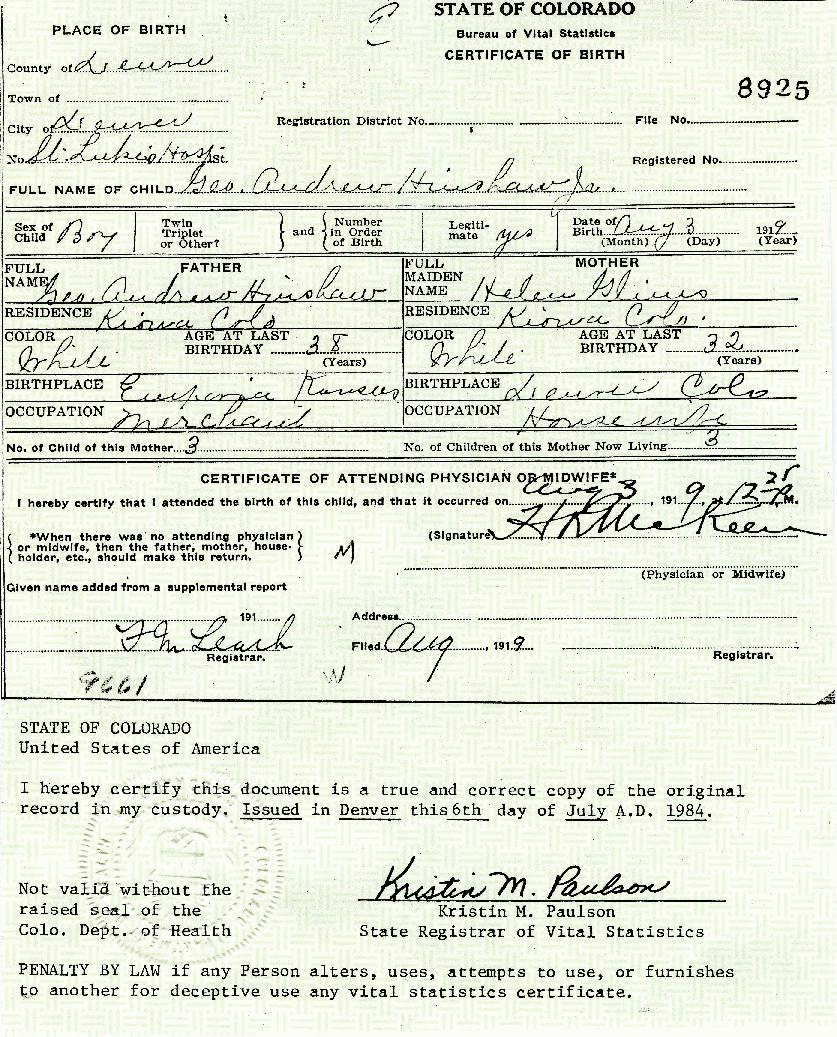 STATE OF COLORADO
Bureau of Vital Statistics
CERTIFICATE OF BIRTH
8925
PLACE OF BIRTH
County of Denver
Town of
City of Denver
Registration District No. File No.
No. St. Luke's Hosp St.
Registered No.
FULL NAME OF CHILD Geo. Andrew Hinshaw Jr.
Sex of Child Boy Twin Triplet or Other? and Number in Order of Birth Legitimate yes Date of Birth Aug 3 1919
(Month) (Day) (Year)
FATHER
FULL NAME Geo. Andrew Hinshaw
RESIDENCE Kiowa Colo
COLOR White AGE AT LAST BIRTHDAY 38 (Years)
BIRTHPLACE Kansas
OCCUPATION Merchant
MOTHER
FULL MAIDEN NAME Helen
RESIDENCE Kiowa Colo.
COLOR White AGE AT LAST BIRTHDAY 32 (Years)
BIRTHPLACE Denver Colo
OCCUPATION Housewife
No. of Child of this Mother 3 No. of Children of this Mother Now Living 3
CERTIFICATE OF ATTENDING PHYSICIAN OR MIDWIFE*
I hereby certify that I attended the birth of this child, and that it occurred on Aug 3, 1919, at 12 25 M.
*When there was no attending physician
or midwife, then the father, mother, house-
holder, etc., should make this return.
M
(Signature) McKeen
(Physician or Midwife)
Given name added from a supplemental report
191
Address
F M Leash
Registrar.
Filed Aug, 1919
Registrar.
9661
W
STATE OF COLORADO
United States of America
I hereby certify this document is a true and correct copy of the original
record in my custody. Issued in Denver this 6th day of July A.D. 1984.
Not valid without the
raised seal of the
Colo. Dept. of Health
Kristin M. Paulson
Kristin M. Paulson
State Registrar of Vital Statistics
PENALTY BY LAW if any Person alters, uses, attempts to use, or furnishes
to another for deceptive use any vital statistics certificate.